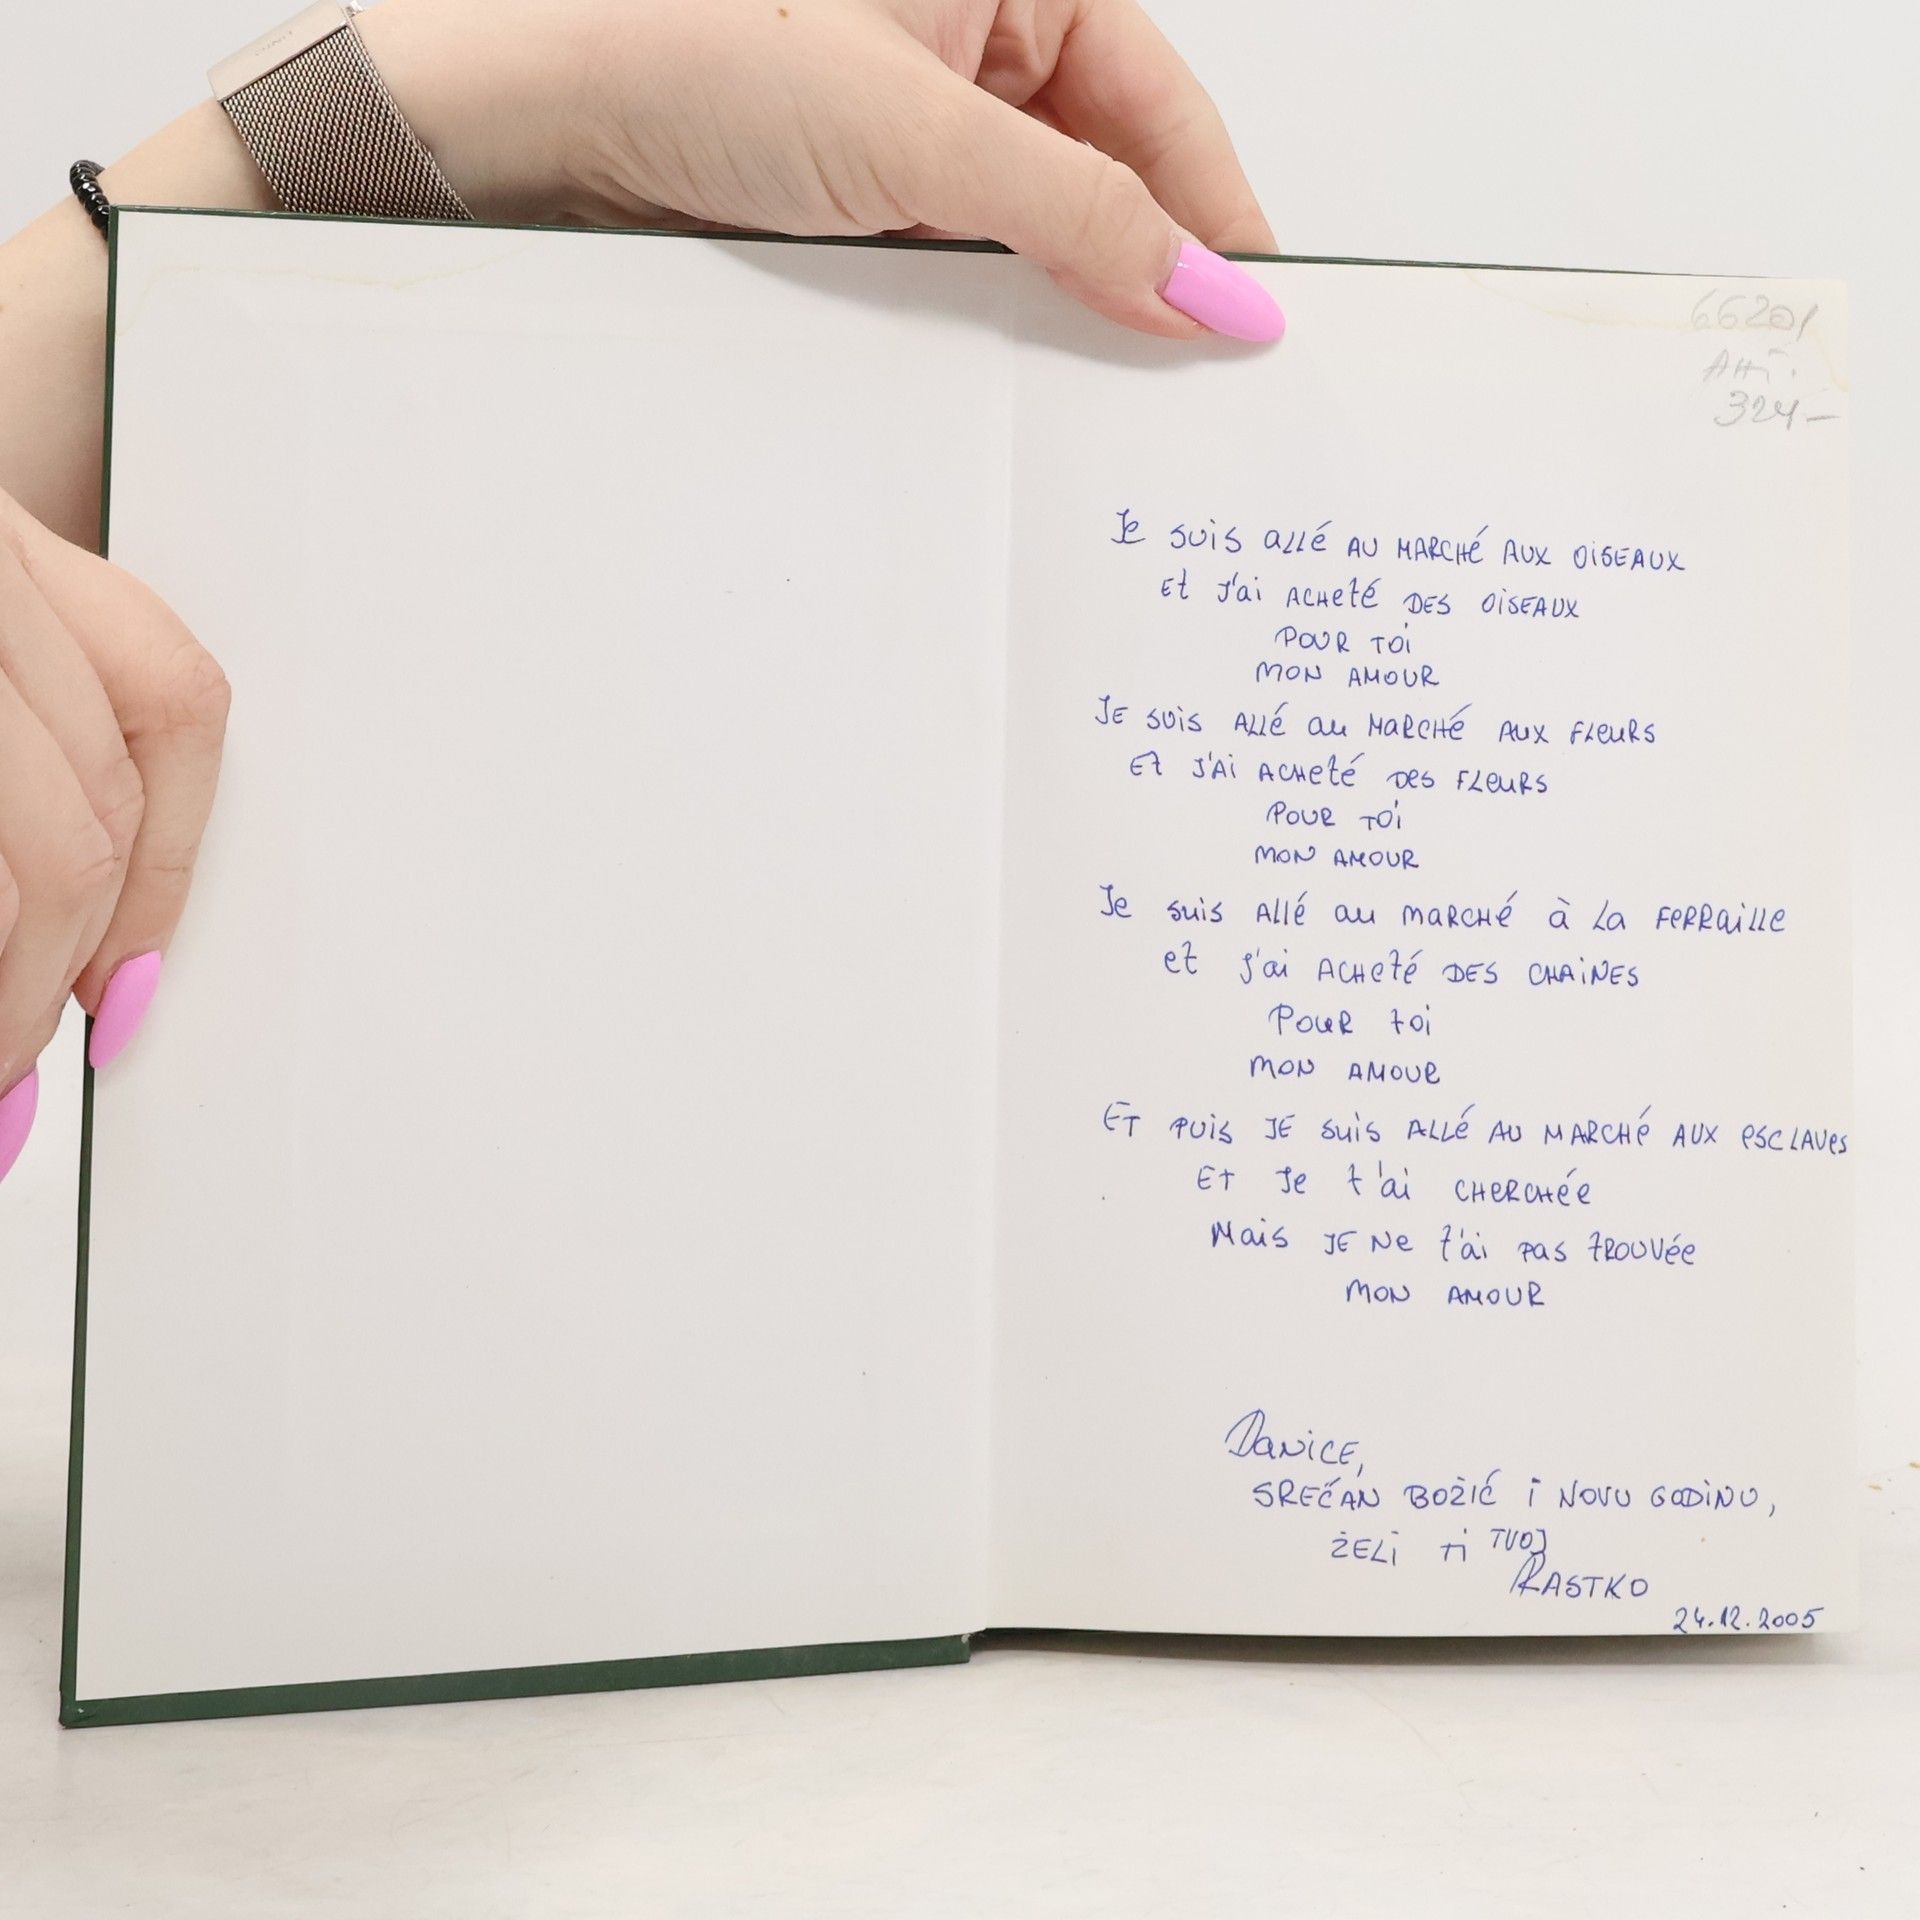 66201
324-
Je suis allé au marché aux oiseaux
et j'ai acheté des oiseaux
pour toi
mon amour
Je suis allé au marché aux fleurs
et j'ai acheté des fleurs
pour toi
mon amour
Je suis allé au marché à la ferraille
et j'ai acheté des chaines
Pour toi
mon amour
Et puis je suis allé au marché aux esclaves
Et je t'ai cherchée
Mais je ne t'ai pas trouvée
mon amour
Danice,
SREČAN BOŽIĆ i NOVU GODINU,
ŽELi Ti TVOJ
RASTKO
24.12.2005